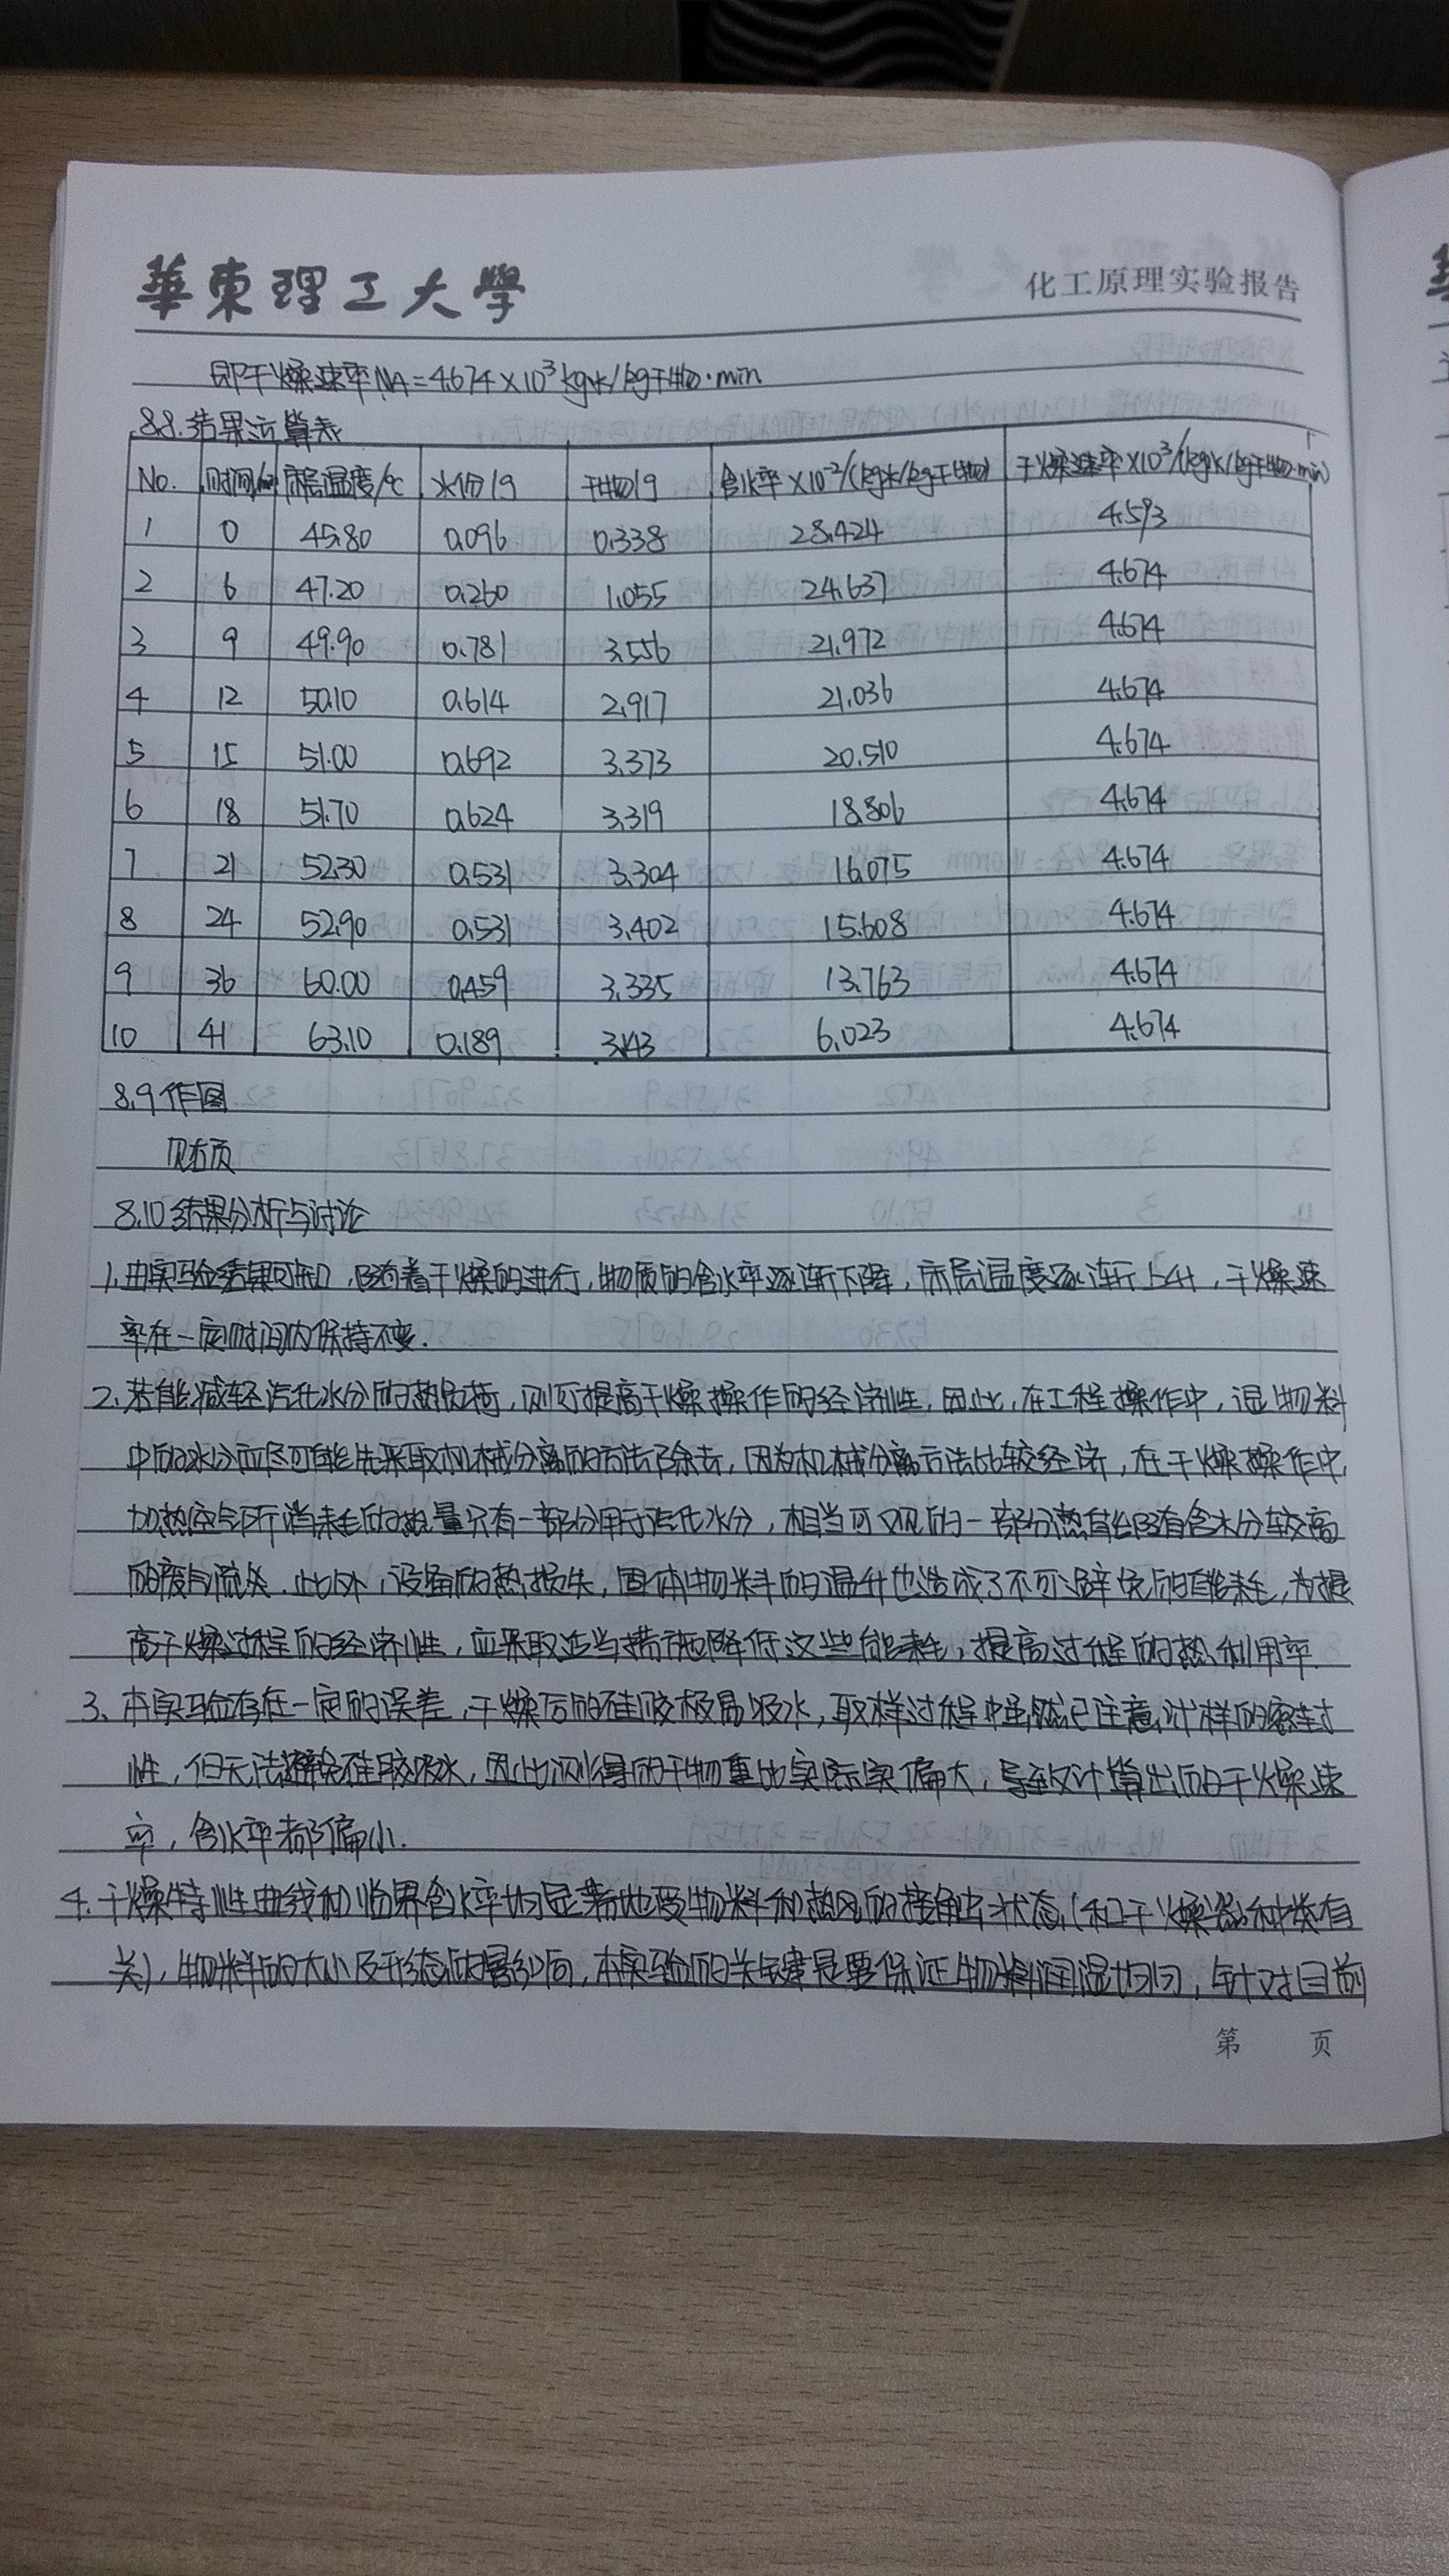 華東理工大學
化工原理实验报告
即干燥速率NA=4.674×10³kg水/kg干物·min
8.8.结果运算表
No. 时间/min 床层温度/℃ 水份/g 干物/g 含水率×10⁻²/(kg水/kg干物) 干燥速率×10³/(kg水/kg干物·min)
1 0 45.80 0.096 0.338 28.424 4.593
2 6 47.20 0.260 1.055 24.637 4.674
3 9 49.90 0.781 3.556 21.972 4.674
4 12 50.10 0.614 2.917 21.036 4.674
5 15 51.00 0.692 3.373 20.510 4.674
6 18 51.70 0.624 3.319 18.806 4.674
7 21 52.30 0.531 3.304 16.075 4.674
8 24 52.90 0.531 3.402 15.608 4.674
9 36 60.00 0.459 3.335 13.763 4.674
10 41 63.10 0.189 3.143 6.023 4.674
8.9作图
见右页
8.10结果分析与讨论
1.由实验结果可知,随着干燥的进行,物质的含水率逐渐下降,床层温度逐渐上升,干燥速
率在一定时间内保持不变.
2.若能减轻汽化水分的热负荷,则可提高干燥操作的经济性,因此,在工程操作中,湿物料
中的水分应尽可能先采取机械分离的方法除去,因为机械分离方法比较经济,在干燥操作中,
加热空气所消耗的热量只有一部分用于汽化水分,相当可观的一部分热能随含水分较高
的废气流失.此外,设备的热损失,固体物料的温升也造成了不可避免的能耗,为提
高干燥过程的经济性,应采取适当措施降低这些能耗,提高过程的热利用率.
3.本实验存在一定的误差,干燥后的硅胶极易吸水,取样过程中虽然已注意试样的密封
性,但无法避免硅胶吸水,因此测得的干物重比实际实偏大,导致计算出的干燥速
率,含水率都偏小.
4.干燥特性曲线和临界含水率均显著地受物料和热风的接触状态(和干燥器种类有
关),物料的大小及形态的影响,本实验的关键是要保证物料润湿均匀,针对目前
第 页